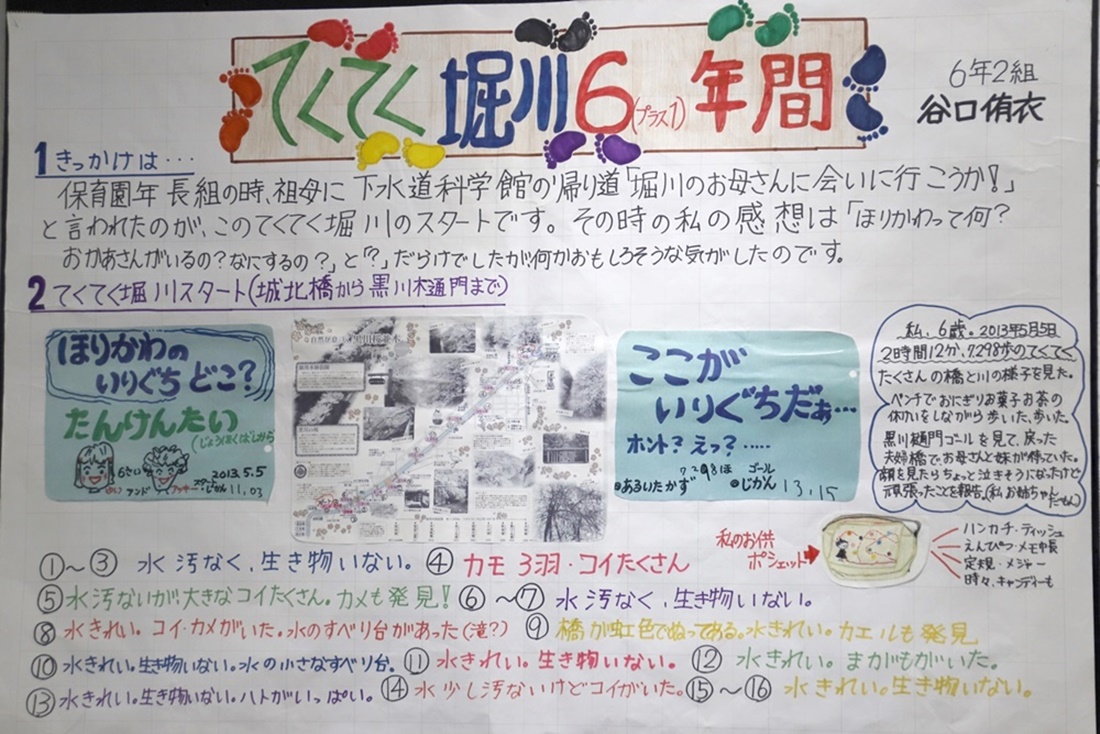 てくてく堀川6(プラス1)年間
6年2組
谷口侑衣
1 きっかけは…
保育園年長組の時、祖母に下水道科学館の帰り道「堀川のお母さんに会いに行こうか!」
と言われたのが、このてくてく堀川のスタートです。その時の私の感想は「ほりかわって何?
おかあさんがいるの?なにするの?」と「?」だらけでしたが何かおもしろそうな気がしたのです。
2 てくてく堀川スタート(城北橋から黒川樋門まで)
ほりかわの
いりぐちどこ?
たんけんたい
(じょうほくばしから
6さい
アンド
2013.5.5
スタートじかん 11.03
ここが
いりぐちだぁ…
ホント?えっ?……
●あるいたかず 7298ほ
ゴール
●じかん 13.15
私、6歳。2013年5月5日
2時間12分、7298歩のてくてく
たくさんの橋と川の様子を見た。
ベンチでおにぎりお菓子お茶の
休けいをしながら歩いた、歩いた。
黒川樋門ゴールを見て、戻った
夫婦橋で、お母さんと妹が待っていた。
顔を見たらちょっと泣きそうになったけど
頑張ったことを報告。(私お姉ちゃん
だもん)
私のお供
ポシェット
ハンカチ・ティッシュ
えんぴつ・メモ帳
定規・メジャー
時々、キャンディーも
①~③ 水汚なく、生き物いない。④ カモ3羽・コイたくさん
⑤水汚ないが、大きなコイたくさん。カメも発見!⑥~⑦ 水汚なく、生き物いない。
⑧ 水きれい。コイ・カメがいた。水のすべり台があった(滝?) ⑨ 橋が虹色でぬってある。水きれい。カエルも発見
⑩ 水きれい。生き物いない。水の小さなすべり台。⑪ 水きれい。生き物いない。⑫ 水きれい。まがもがいた。
⑬ 水きれい。生き物いない。ハトがいっぱい。⑭ 水少し汚ないけどコイがいた。⑮~⑯ 水きれい。生き物いない。